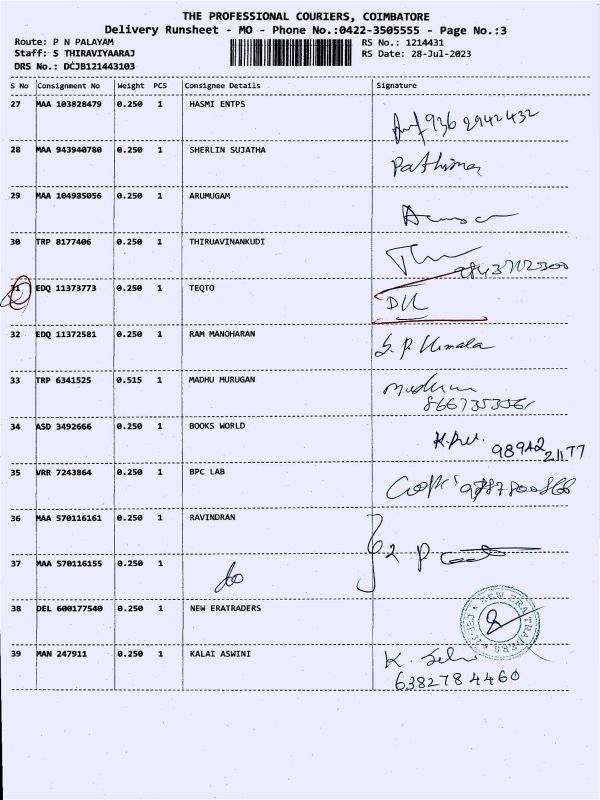 THE PROFESSIONAL COURIERS, COIMBATORE
Delivery Runsheet - MO - Phone No.:0422-3505555 - Page No.:3
Route: P N PALAYAM RS No.: 1214431
Staff: S THIRAVIYAARAJ RS Date: 28-Jul-2023
DRS No.: DCJB121443103
S No Consignment No Weight PCS Consignee Details Signature
27 MAA 103828479 0.250 1 HASMI ENTPS
936 2942432
28 MAA 943940780 0.250 1 SHERLIN SUJATHA
29 MAA 104985056 0.250 1 ARUMUGAM
30 TRP 8177406 0.250 1 THIRUVINANKUDI
31 EDQ 11373773 0.250 1 TEQTO
32 EDQ 11372581 0.250 1 RAM MANOHARAN
S. P. Vimala
33 TRP 6341525 0.515 1 MADHU MURUGAN
34 ASD 3492666 0.250 1 BOOKS WORLD
35 VRR 7243864 0.250 1 BPC LAB
36 MAA 570116161 0.250 1 RAVINDRAN
37 MAA 570116155 0.250 1 do
38 DEL 600177540 0.250 1 NEW ERATRADERS
NEW ERA TRADERS
39 MAN 247911 0.250 1 KALAI ASWINI
K. Selvi
6382784460